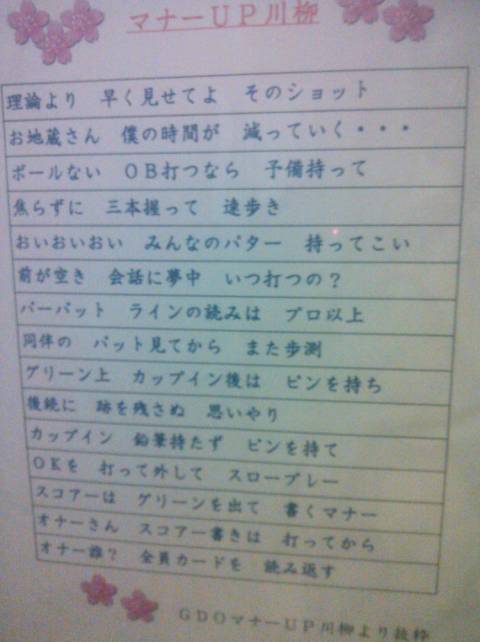 マナーUP川柳
理論より 早く見せてよ そのショット
お地蔵さん 僕の時間が 減っていく・・・
ボールない OB打つなら 予備持って
焦らずに 三本握って 速歩き
おいおいおい みんなのパター 持ってこい
前が空き 会話に夢中 いつ打つの？
バーパット ラインの読みは プロ以上
同伴の パット見てから また歩測
グリーン上 カップイン後は ピンを持ち
後続に 跡を残さぬ 思いやり
カップイン 鉛筆持たず ピンを持て
OKを 打って外して スロープレー
スコアーは グリーンを出て 書くマナー
オナーさん スコアー書きは 打ってから
オナー誰？ 全員カードを 読み返す
GDOマナーUP川柳より抜粋